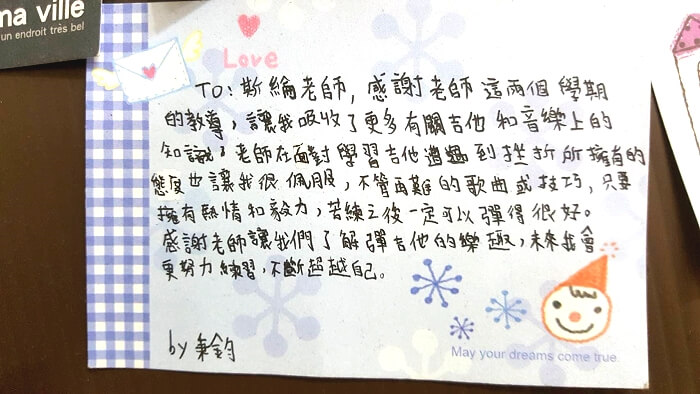 ma ville
un endroit très bel
Love
TO: 斯綸老師, 感謝老師這兩個學期
的教導, 讓我吸收了更多有關吉他和音樂上的
知識, 老師在面對學習吉他遭遇到挫折所擁有的
態度也讓我很佩服, 不管再難的歌曲或技巧, 只要
擁有熱情和毅力, 苦練之後一定可以彈得很好。
感謝老師讓我們了解彈吉他的樂趣, 未來我會
更努力練習, 不斷超越自己。
by 秉鈞
May your dreams come true.